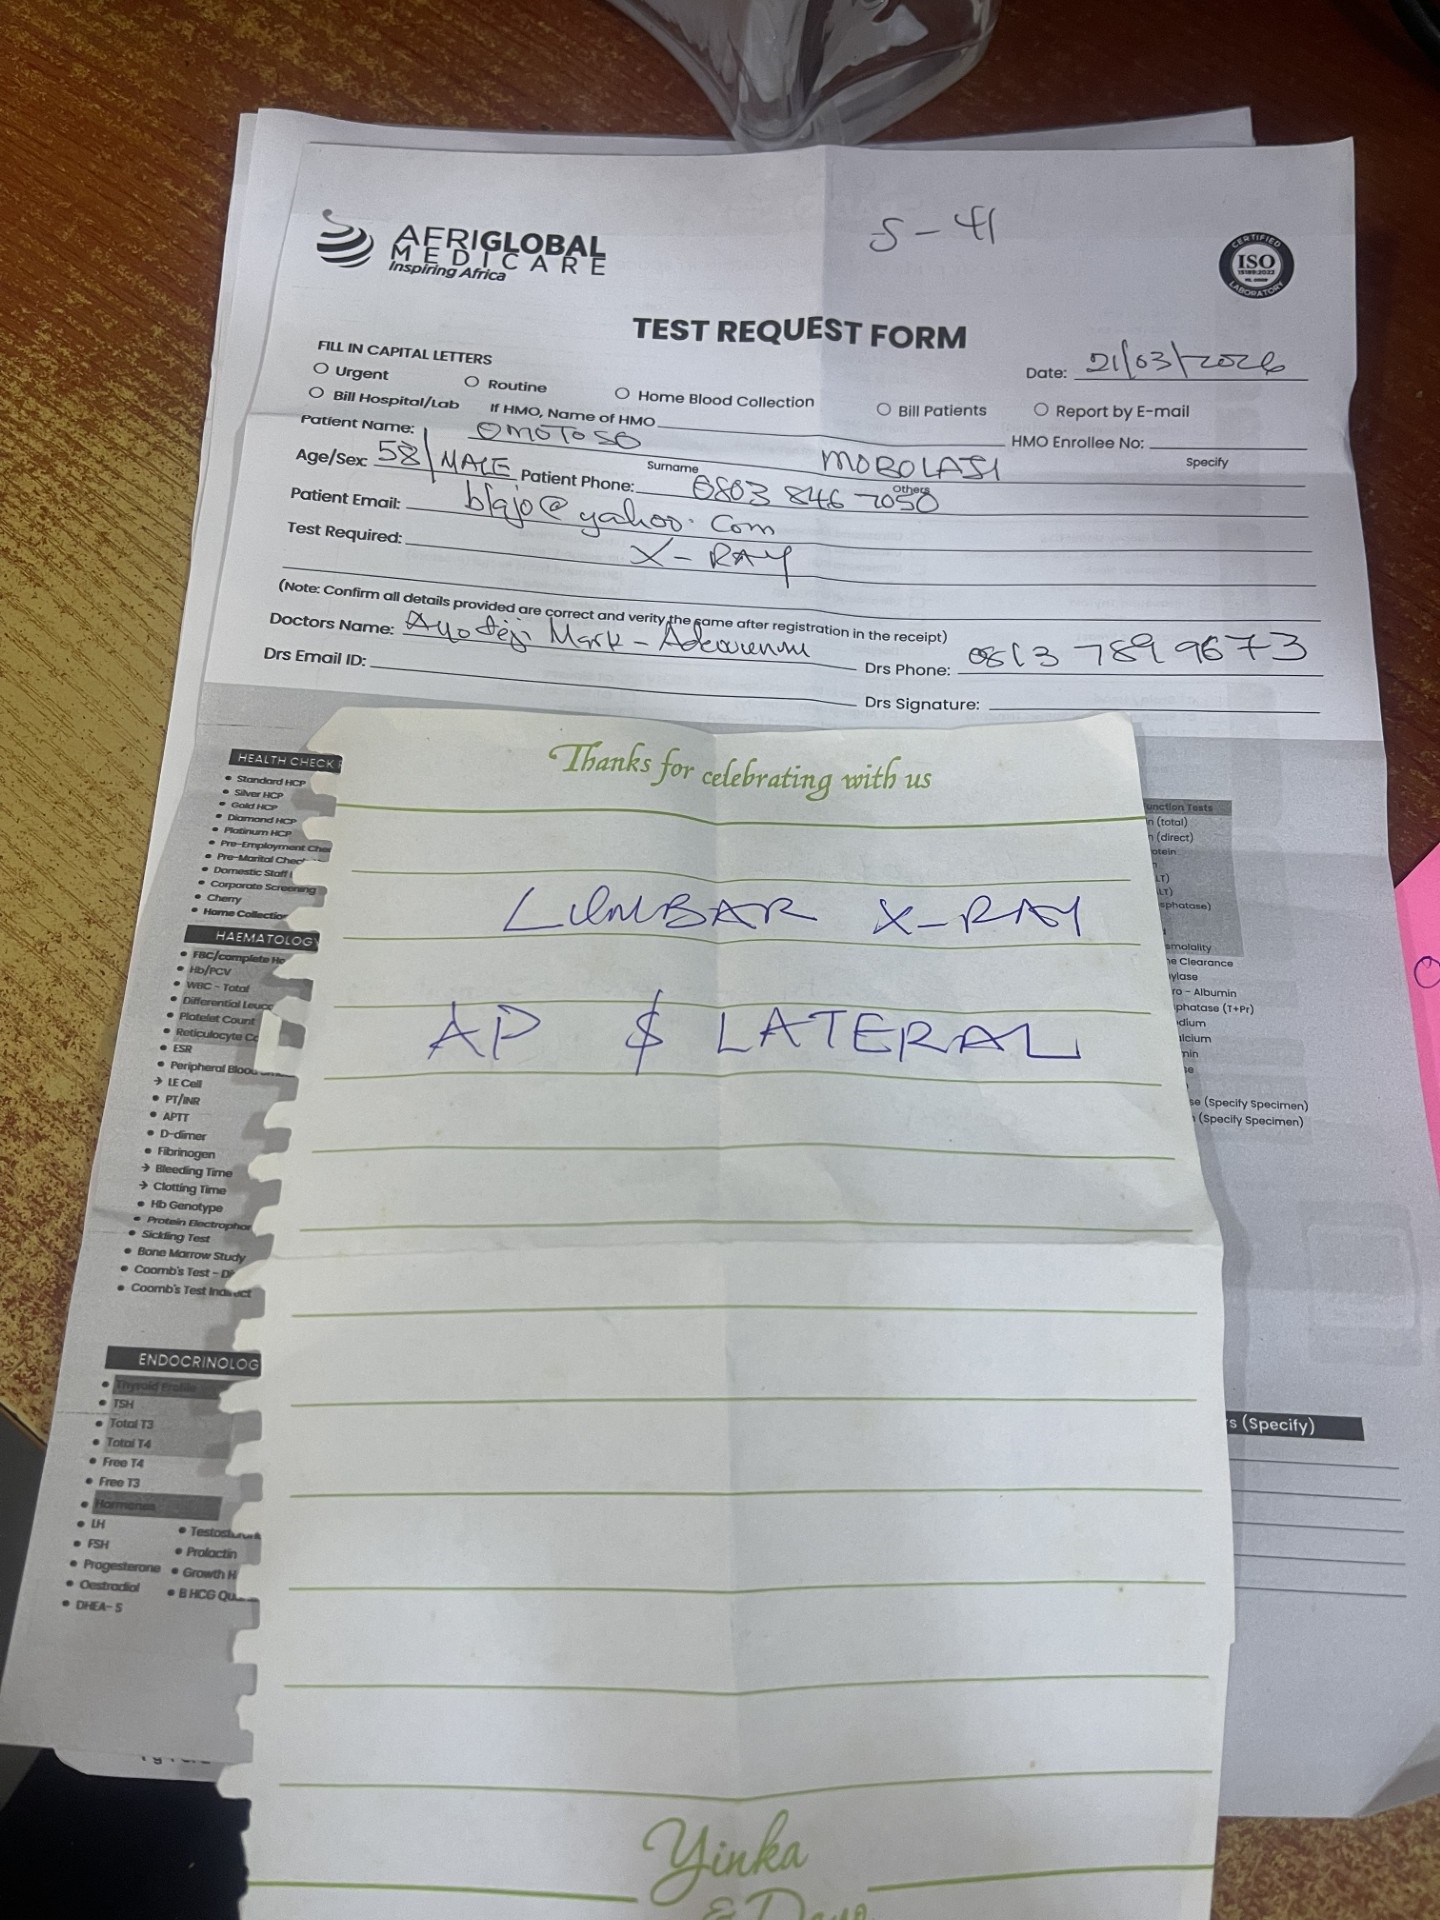 S-41
AFRIGLOBAL
MEDICARE
Inspiring Africa
CERTIFIED
ISO
15189:2022
LABORATORY
TEST REQUEST FORM
FILL IN CAPITAL LETTERS
Date: 21/03/2026
Urgent Routine Home Blood Collection Bill Patients Report by E-mail
Bill Hospital/Lab If HMO, Name of HMO HMO Enrollee No:
Patient Name: OMOTOSO MOROLASI
Surname Others Specify
Age/Sex: 58/MALE Patient Phone: 0803 846 7050
Patient Email: blajo@yahoo.com
Test Required: X-RAY
(Note: Confirm all details provided are correct and verity the same after registration in the receipt)
Doctors Name: Ayodeji Mark- Drs Phone: 0813 789 9673
Drs Email ID:
Drs Signature:
Thanks for celebrating with us
LUMBAR X-RAY
AP $ LATERAL
Yinka
&
HEALTH CHECK
Standard HCP
Silver HCP
Gold HCP
Diamond HCP
Platinum HCP
Pre-Employment Che
Pre-Marital Chec
Domestic Staff
Corporate Screening
Cherry
Home Collectio
HAEMATOLOG
FBC/complete
Hb/PCV
WBC - Total
Differential Leuc
Platelet Count
Reticulocyte Co
ESR
Peripheral Blood
LE Cell
PT/INR
APTT
D-dimer
Fibrinogen
Bleeding Time
Clotting Time
Hb Genotype
Protein Electrophor
Sickling Test
Bone Marrow Study
Coomb's Test - Di
Coomb's Test Indirect
ENDOCRINOLOG
Thyroid Profile
TSH
Total T3
Total T4
Free T4
Free T3
Hormones
LH
FSH
Progesterone
Oestradiol
DHEA-S
Prolactin
Growth H
B HCG
unction Tests
n (total)
n (direct)
otein
LT)
LT)
sphatase)
smolality
ne Clearance
ylase
ro - Albumin
phatase (T+Pr)
dium
alcium
nin
se
se (Specify Specimen)
(Specify Specimen)
s (Specify)